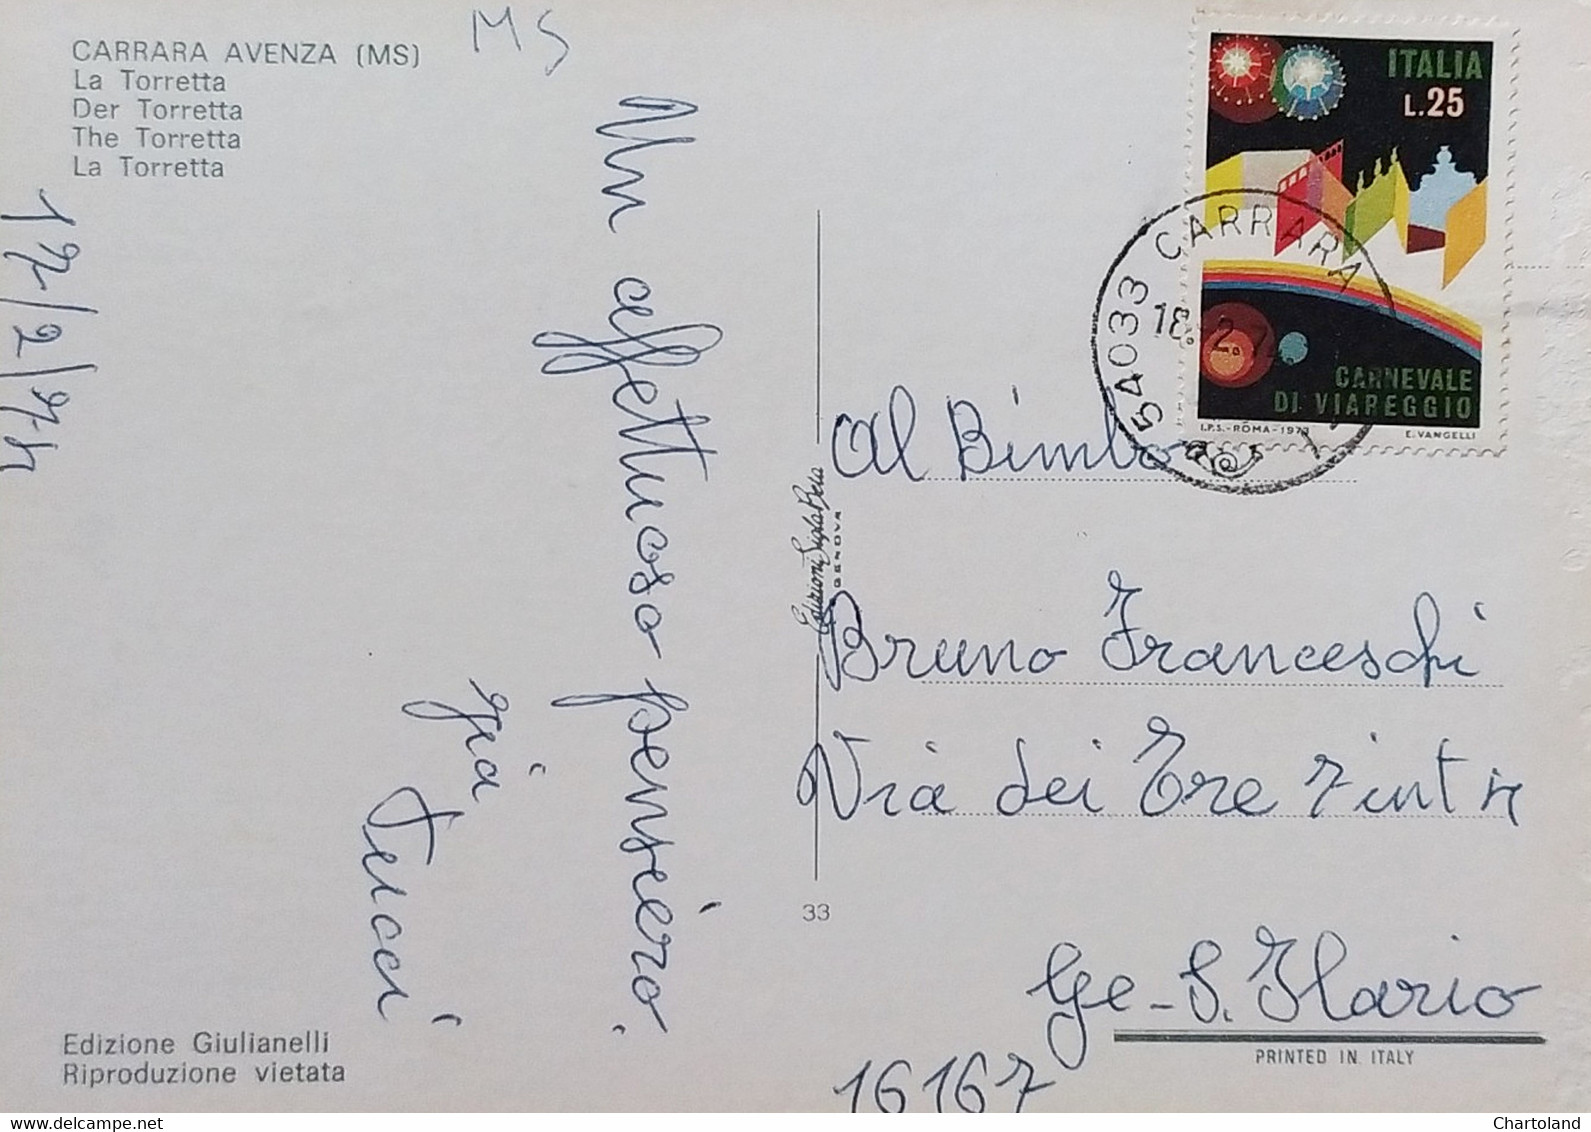 CARRARA AVENZA (MS)
La Torretta
Der Torretta
The Torretta
La Torretta
MS
17/2/74
Un affettuoso pensiero.
zia
Lucci
Edizione Giulianelli
Riproduzione vietata
Edizioni Sigla Bera
GENOVA
33
ITALIA
L.25
CARNEVALE
DI VIAREGGIO
I.P.S.-ROMA-1973
E. VANGELLI
54033 CARRARA
18.-2.74
al Bimbo
Bruno Franceschi
Via dei Tre
Ge-S. Ilario
16167
PRINTED IN ITALY
Chartoland
delcampe.net